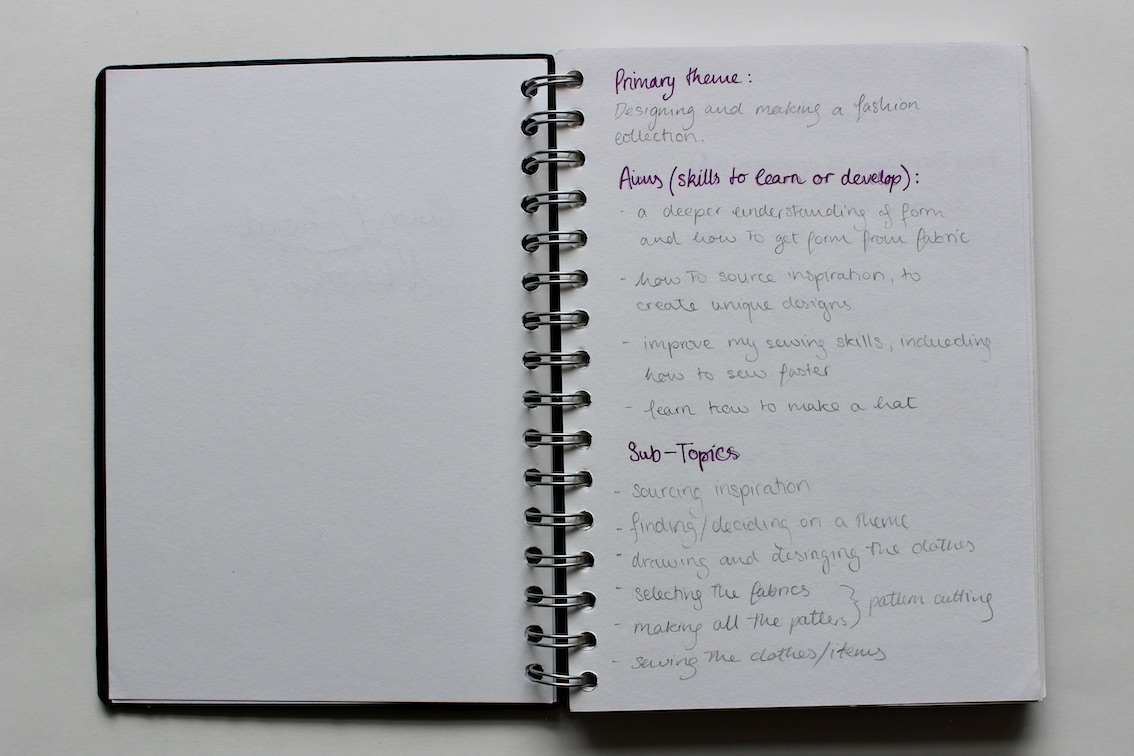 Primary theme:
Designing and making a fashion
collection.
Aims (skills to learn or develop):
- a deeper understanding of form
and how to get form from fabric
- how to source inspiration, to
create unique designs
- improve my sewing skills, including
how to sew faster
- learn how to make a hat
Sub-Topics
- sourcing inspiration
- finding/deciding on a theme
- drawing and desinging the clothes
- selecting the fabrics
- making all the patters } pattern cutting
- sewing the clothes/items